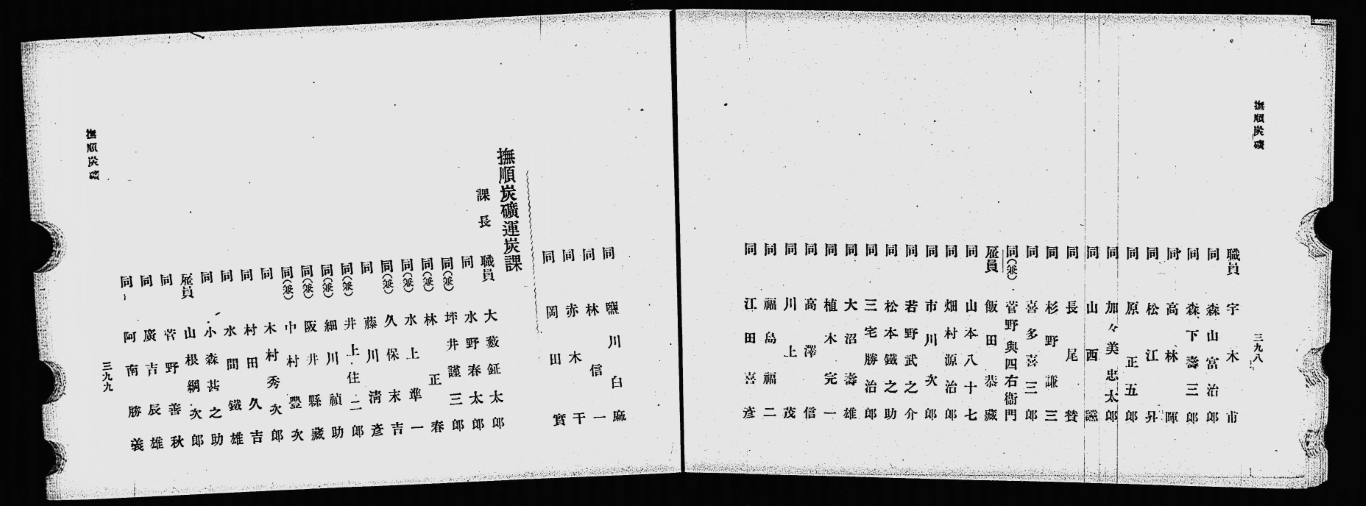 撫順炭礦
三九八
職員 宇木市
同 森山富治郎
同 森下壽三郎
同 高林
同 松江昇
同 原正五郎
同 加々美忠太郎
同 山西
同 長尾贊
同 杉野謙三
同 喜多喜三郎
同(兼) 菅野與四右衞門
雇員 飯田恭藏
同 山本八十七
同 畑村源治郎
同 市川次郎
同 若野武之介
同 松本鐵之助
同 三宅勝治郎
同 大沼壽雄
同 植木完一
同 高澤信
同 川上茂
同 福島福二
同 江田喜彥
同 鹽川白麻
同 林信一
同 赤木干
同 岡田實
撫順炭礦運炭課
課長
職員 大薮鉦太郎
同 水野春太郎
同(兼) 坪井謹三郎
同(兼) 林正春
同(兼) 水上準一
同(兼) 久保末吉
同 藤川清彥
同(兼) 井上住二郎
同(兼) 細川禎助
同(兼) 阪井縣藏
同(兼) 中村豐次
同 木村秀次郎
同 村田久吉
同 水間鐵雄
同 小森甚之助
雇員 山根綱次郎
同 菅野善秋
同 廣吉辰雄
同 阿南勝義
撫順炭礦
三九九